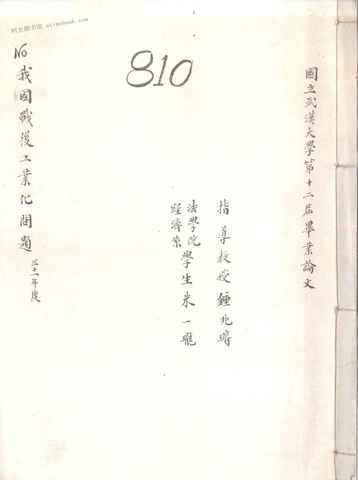 國立武漢大學第十二屆畢業論文
指導教授鍾兆璿
法學院
經濟系
學生朱一飛
我國戰後工業化問題
三十一年度
810